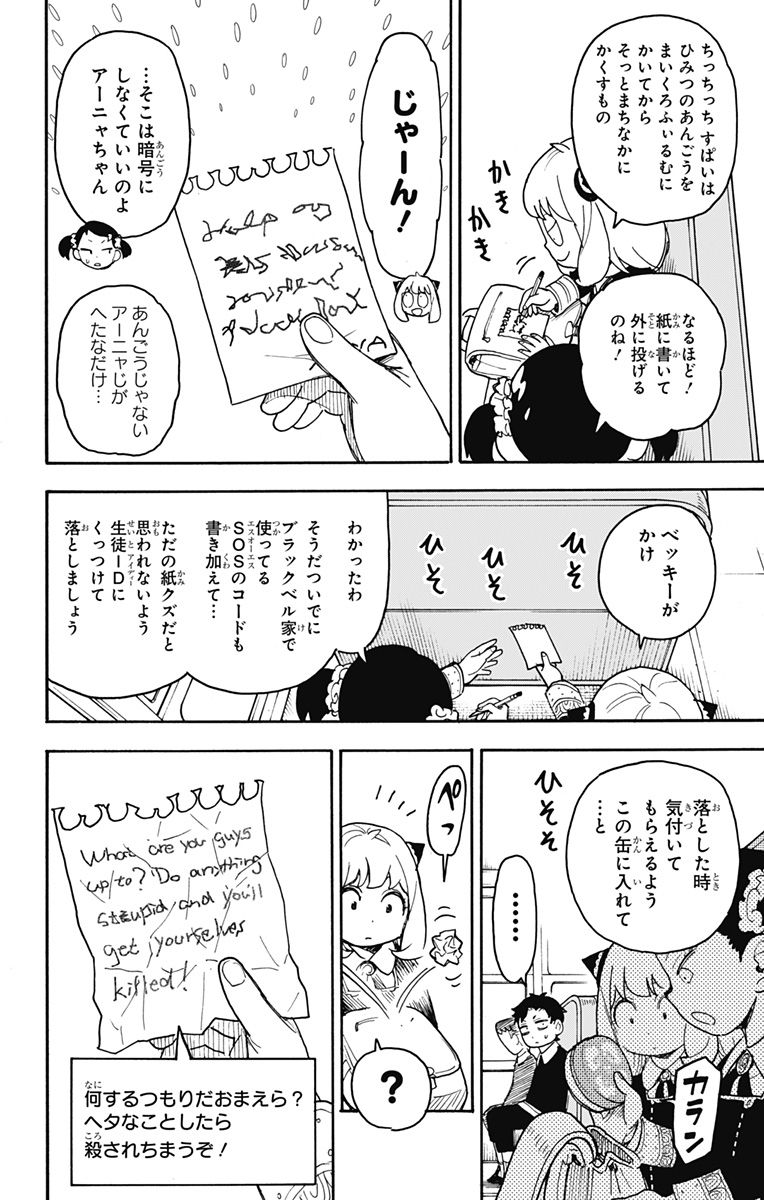 ちっちっち すぱいは
ひみつのあんごうを
まいくろふぃるむに
かいてから
そっとまちなかに
かくすもの
かき
かき
なるほど！
紙に書いて
外に投げる
のね！
じゃーん！
…そこは暗号に
しなくていいのよ
アーニャちゃん
あんごうじゃない
アーニャじが
へたなだけ…
ベッキーが
かけ
ひそ
ひそ
わかったわ
そうだついでに
ブラックベル家で
使ってる
SOSのコードも
書き加えて…
ただの紙クズだと
思われないよう
生徒IDに
くっつけて
落としましょう
落とした時
気付いて
もらえるよう
この缶に入れて
…と
ひそそ
カラン
……
ペっ
？
What are you guys
up to? Do anything
stupid and you'll
get yourselves
killed!
何するつもりだおまえら？
ヘタなことしたら
殺されちまうぞ！